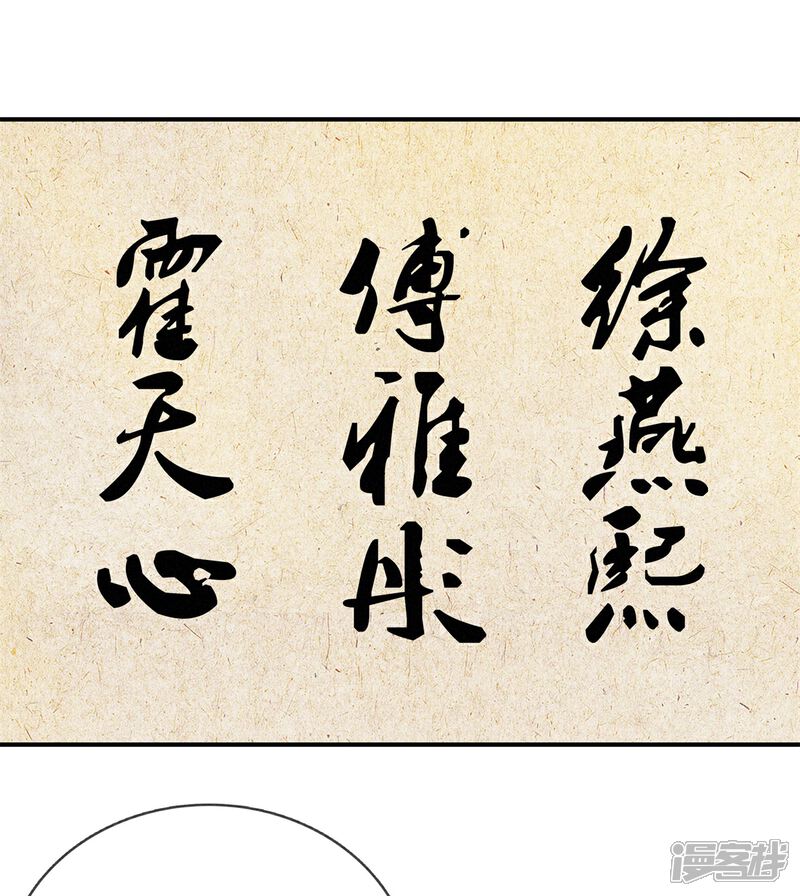 徐燕熙
傅雅彤
霍天心
漫客栈